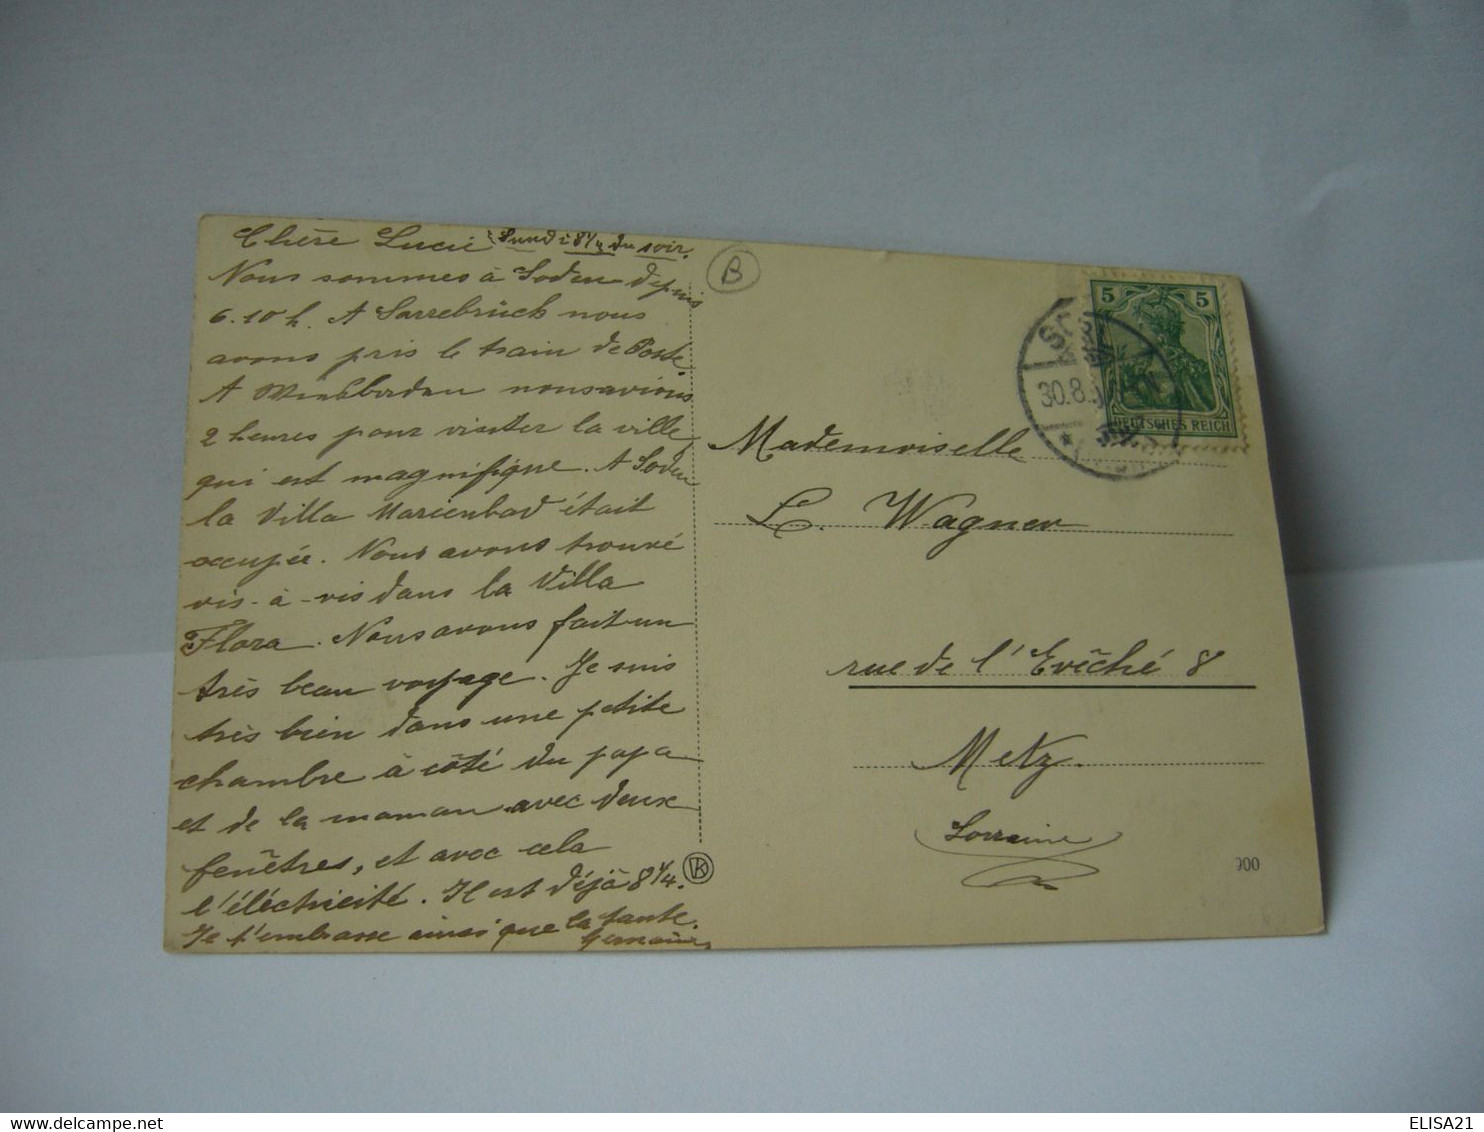 Chère Lucie Lundi 8 1/4 du soir.
Nous sommes à Soden depuis
6.10 h. A Sarrebrück nous
avons pris le train de Poste
A Wiesbaden nous avions
2 heures pour visiter la ville
qui est magnifique. A Soden
la Villa Marienbad était
occupée. Nous avons trouvé
vis-à-vis dans la Villa
Flora. Nous avons fait un
très beau voyage. Je suis
très bien dans une petite
chambre à côté du papa
et de la maman avec deux
fenêtres, et avec cela
l'éléctricité. Il est déjà 8 1/4.
Je t'embrasse ainsi que la tante
Germaine
B
5 5
DEUTSCHES REICH
30.8.
Mademoiselle
L. Wagner
rue de l'Evêché 8
Metz.
Lorraine
900
ELISA21